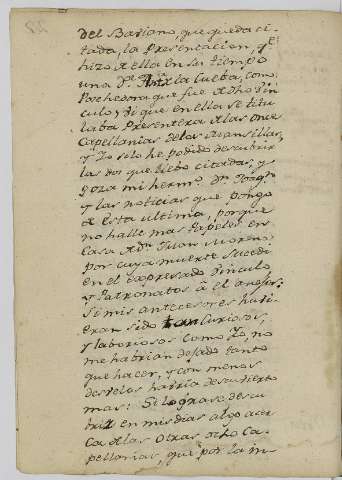 del Bariano, que queda ci-
tada, la Presentacion, qe
hizo a ella en su tiempo
una Da. Anta. la Cueba, como
Pochedora que fue a dho Vin
culo, y di que en ella se titu
laba Presentera a las once
Capellanias de las Mansillas,
y Yo solo he podido descubrir
las dos que llebo citadas, y
goza mi hermo. Dn. Joaqn.
y las noticias que pongo
a esta ultima, porque
no halle mas Papeles en
Casa a Dn. Juan Moreno;
por cuya muerte sucedi
en el expresado Vinculo
y Patronatos a el
Si mis antecesores hubi
eran sido tan Curiosos,
y laboriosos como Yo, no
me habrian dejado tanto
que hacer, y con menos
desvelos habria descubierto
mas: Si lograse descu
brir en mis dias algo acer
ca a las otras ocho Ca
pellanias, que por la in-